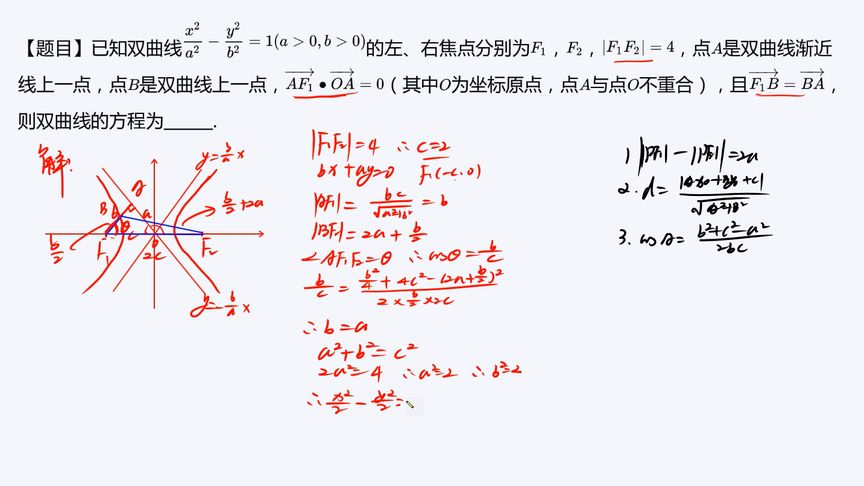 【题目】已知双曲线x²/a² − y²/b² = 1(a > 0, b > 0)的左、右焦点分别为F₁，F₂，|F₁F₂| = 4，点A是双曲线渐近
线上一点，点B是双曲线上一点，AF₁→ • OA→ = 0（其中O为坐标原点，点A与点O不重合），且F₁B→ = BA→，
则双曲线的方程为_____.
解:
y=b/a x
A
B
a
b/2+2a
θ
c
O
F₁
F₂
b/2
2c
y=-b/a x
|F₁F₂|=4 ∴c=2
bx+ay=0 F₁(-c,0)
|AF₁|= bc/√(a²+b²) =b
|BF₂|=2a+b/2
∠AF₁F₂=θ ∴cosθ=b/c
b/c = (b²/4+4c²-(2a+b/2)²)/(2×b/2×2c)
∴b=a
a²+b²=c²
2a²=4 ∴a²=2 ∴b²=2
∴x²/2-y²/2=
1 ||PF₁|-|PF₂||=2a
2. d= |Ax₀+By₀+C|/√(A²+B²)
3. cosA= (b²+c²-a²)/2bc